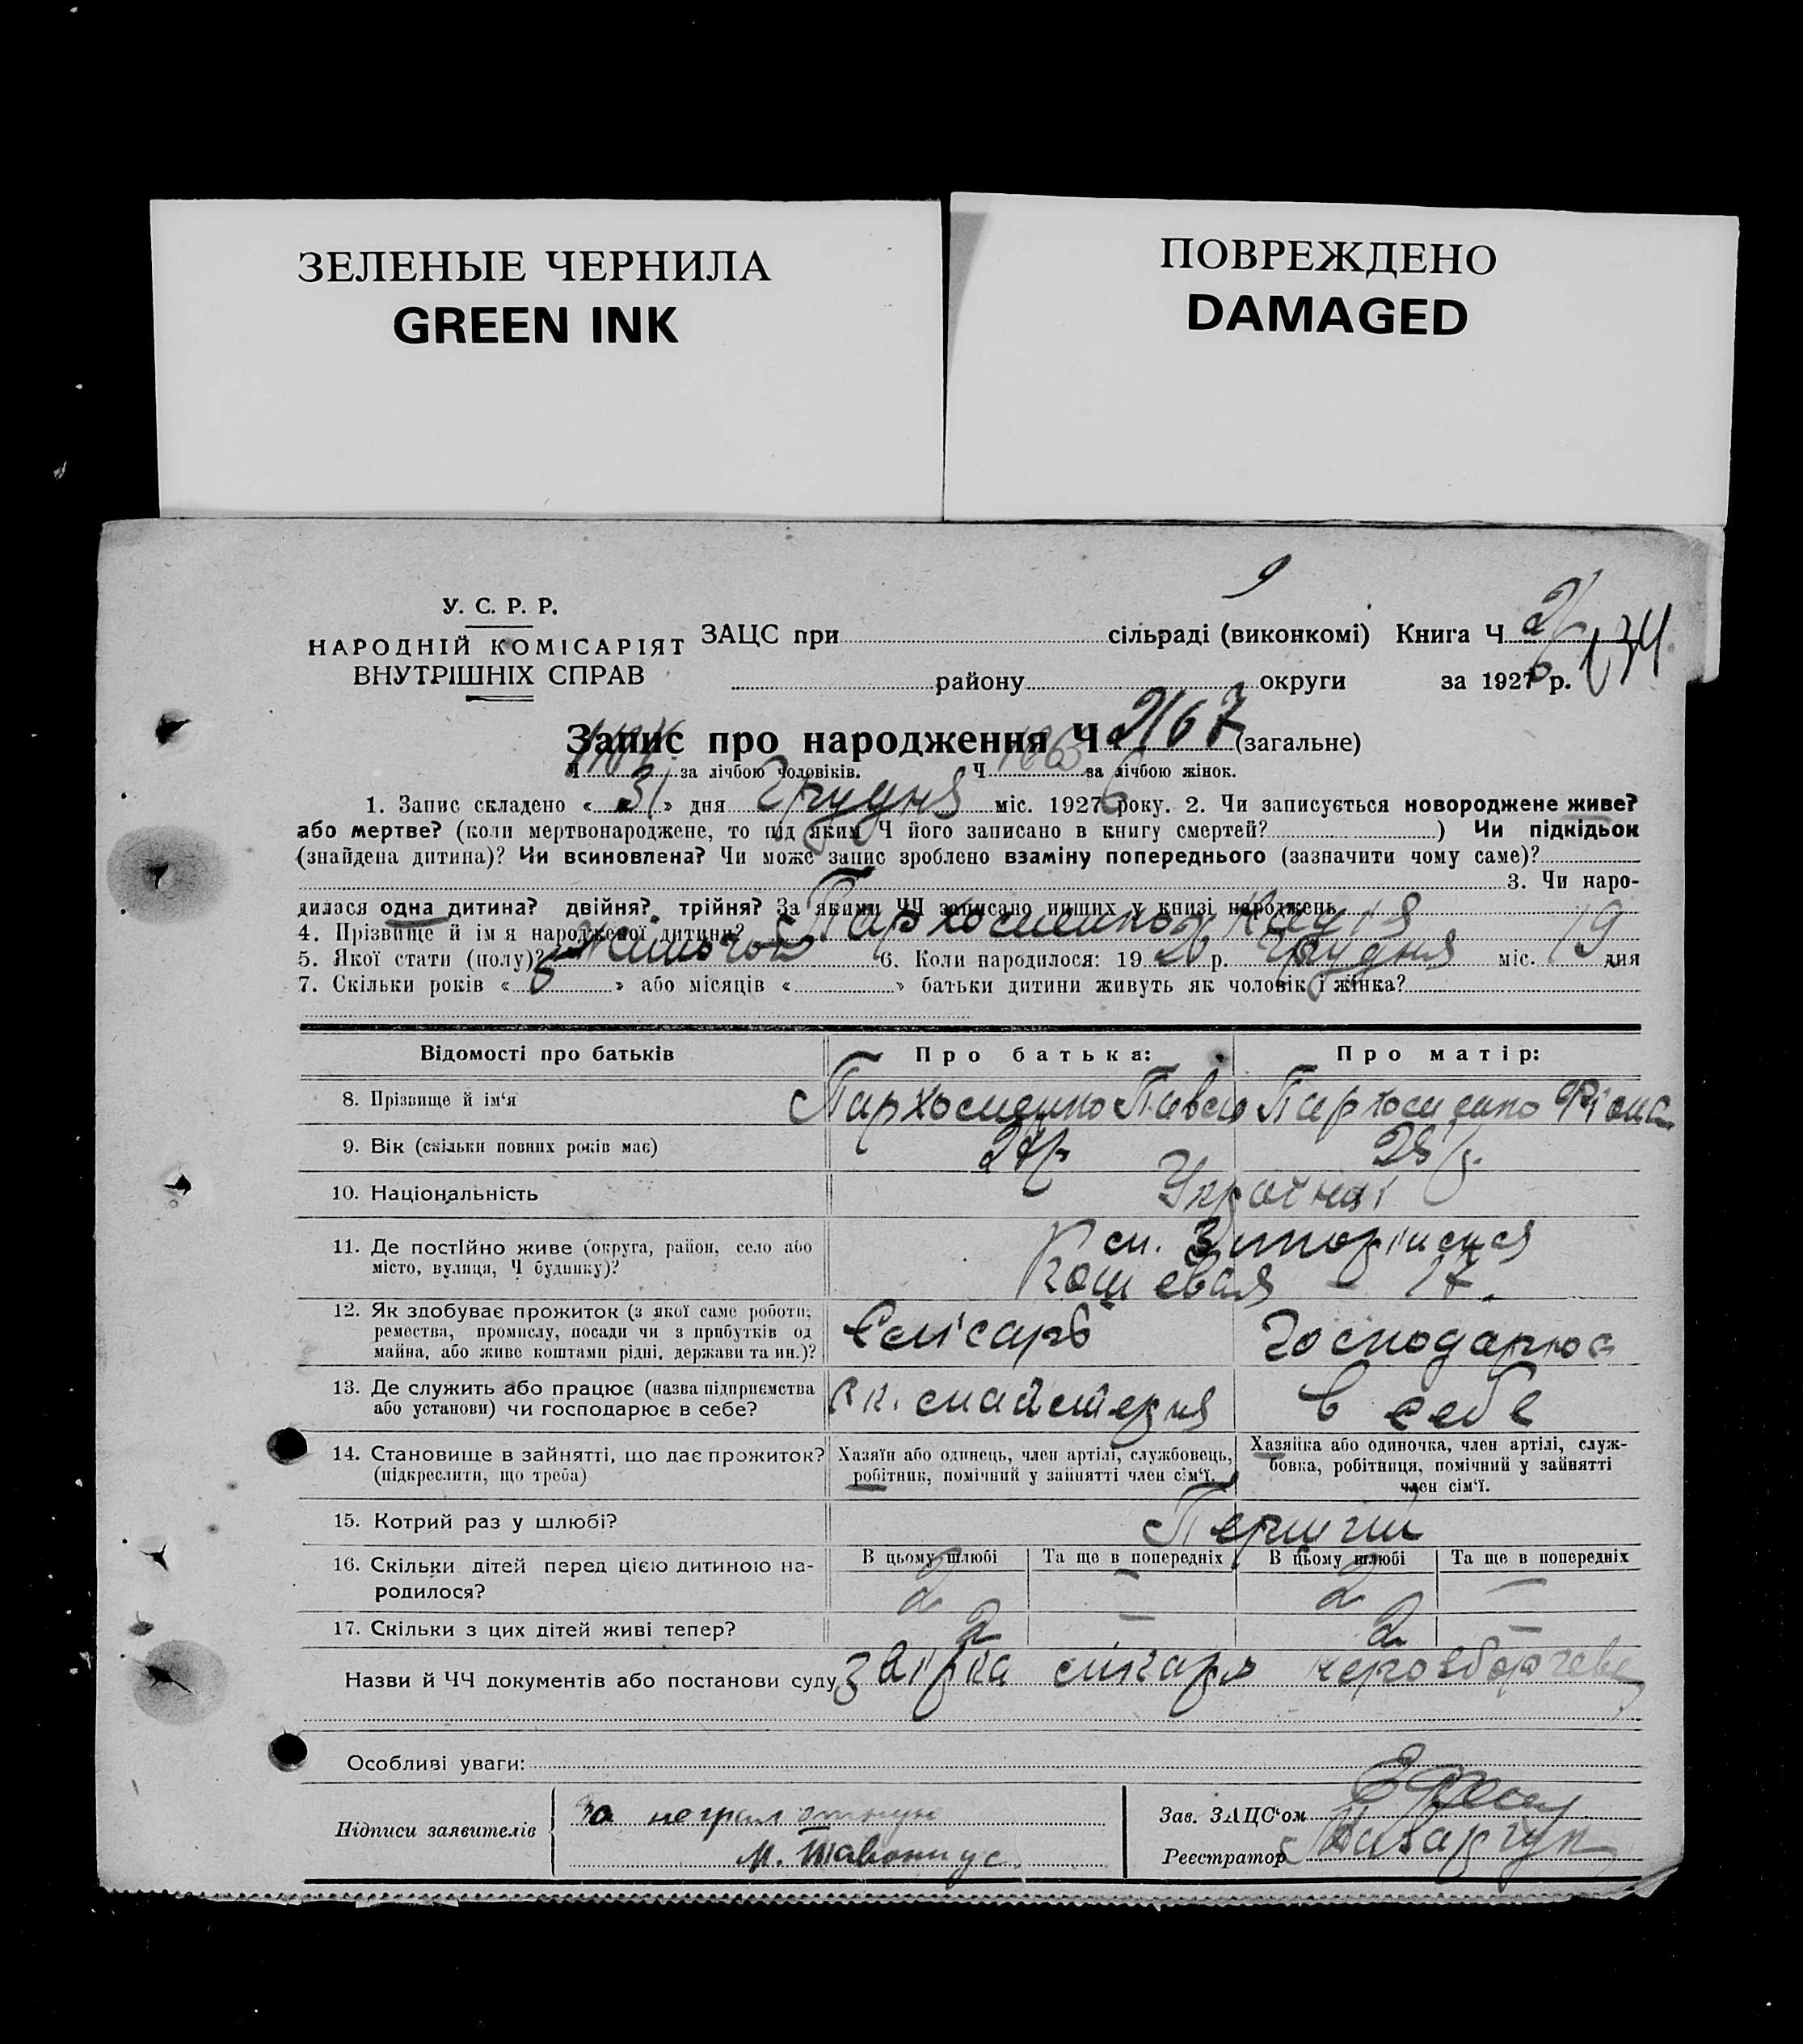 ЗЕЛЕНЫЕ ЧЕРНИЛА
GREEN INK
ПОВРЕЖДЕНО
DAMAGED
9
У. С. Р. Р.
НАРОДНІЙ КОМІСАРІЯТ
ВНУТРІШНІХ СПРАВ
ЗАЦС при сільраді (виконкомі) Книга Ч
134
району округи за 1926 р.
Запис про народження Ч 2167 (загальне)
Ч за лічбою чоловіків. Ч за лічбою жінок.
1. Запис складено « 31 » дня Грудня міс. 1926 року. 2. Чи записується новороджене живе?
або мертве? (коли мертвонароджене, то під яким Ч його записано в книгу смертей? ) Чи підкідьок
(знайдена дитина)? Чи всиновлена? Чи може запис зроблено взаміну попереднього (зазначити чому саме)?
3. Чи наро-
дилася одна дитина? двійня? трійня? За якими ЧЧ записано инших у книзі народжень
4. Прізвище й ім я народженої дитини? Пархоменко
5. Якої стати (полу)? Жиночої 6. Коли народилося: 19 26 р. Грудня міс. 19 дня
7. Скільки років « 8 » або місяців « » батьки дитини живуть як чоловік і жінка?
Відомості про батьків
Про батька:
Про матір:
8. Прізвище й ім‘я
Пархоменко Павло
Пархоменко Фіона
9. Вік (скільки повних років має)
28 р.
10. Національність
11. Де постійно живе (округа, район, село або
місто, вулиця, Ч будинку)?
Кошевая - 17.
12. Як здобуває прожиток (з якої саме роботи,
ремества, промислу, посади чи з прибутків од
майна, або живе коштами рідні, держави та ин.)?
Слісарь
Господарює
13. Де служить або працює (назва підприємства
або установи) чи господарює в себе?
майстерня
в себе
14. Становище в зайнятті, що дає прожиток?
(підкреслити, що треба)
Хазяїн або одинець, член артілі, службовець,
робітник, помічний у зайнятті член сім‘ї.
Хазяйка або одиночка, член артілі, служ-
бовка, робітниця, помічний у зайнятті
член сім‘ї.
15. Котрий раз у шлюбі?
Перший
16. Скільки дітей перед цією дитиною на-
родилося?
В цьому шлюбі
Та ще в попередніх
В цьому шлюбі
Та ще в попередніх
2 — 2 —
17. Скільки з цих дітей живі тепер?
2 — 2 —
Назви й ЧЧ документів або постанови суду
Особливі уваги:
Підписи заявителів
за неграмотную
Зав. ЗАЦС‘ом
Реєстратор